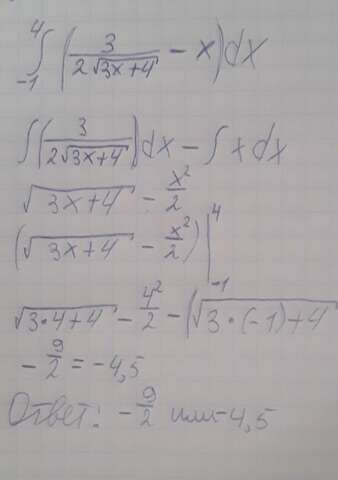 ∫₋₁⁴ (3/(2√(3x+4)) − x) dx
∫(3/(2√(3x+4)))dx − ∫x dx
√(3x+4) − x²/2
(√(3x+4) − x²/2)|₋₁⁴
√(3·4+4) − 4²/2 − (√(3·(−1)+4
− 9/2 = −4,5
Ответ: − 9/2 или −4,5